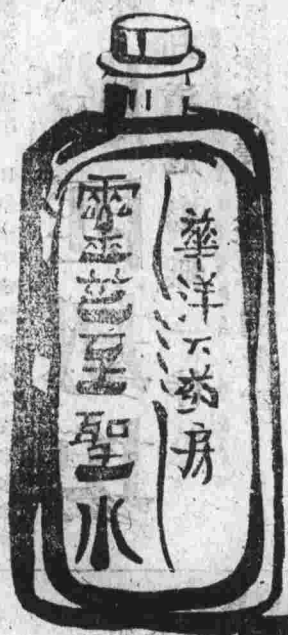 華洋大药房
靈芝至聖水